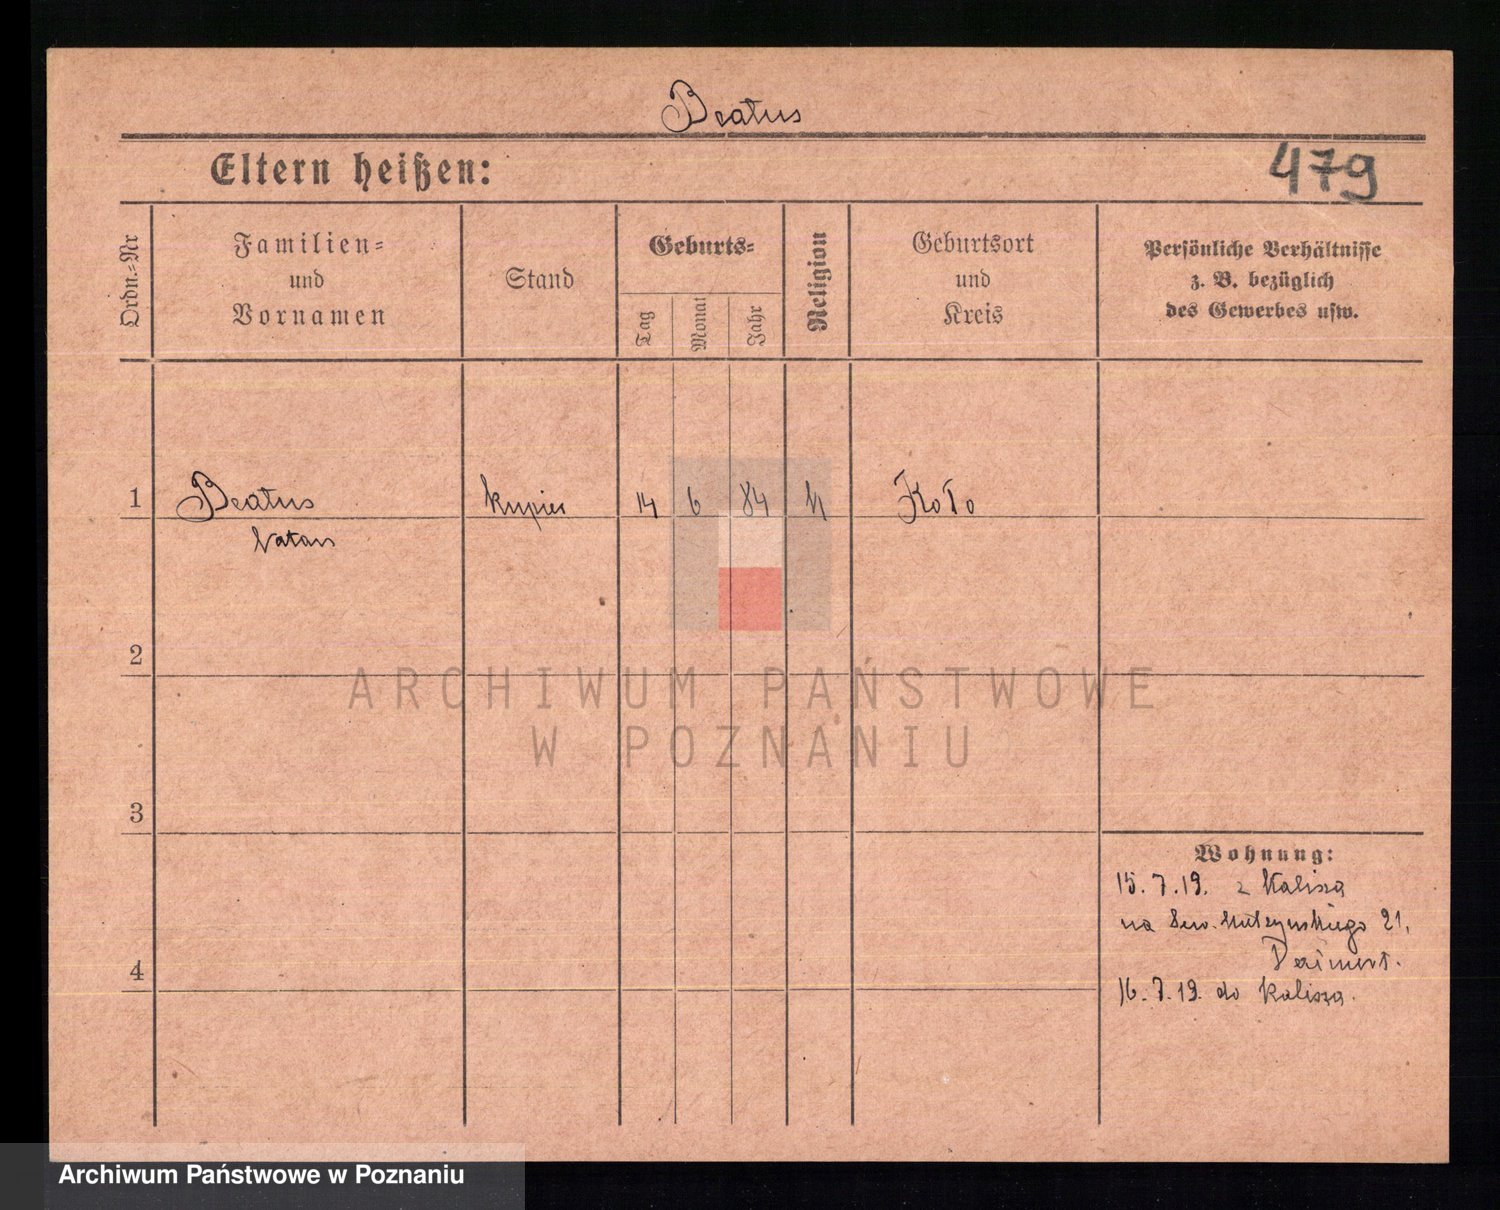 Beatus
Eltern heißen:
479
Ordn.-Nr
Familien-
und
Vornamen
Stand
Geburts-
Tag
Monat
Jahr
Religion
Geburtsort
und
Kreis
Persönliche Verhältnisse
z. B. bezüglich
des Gewerbes usw.
1
Beatus
Natan
kupiec
14
6
84
Koło
2
ARCHIWUM PAŃSTWOWE
W POZNANIU
3
Wohnung:
15. 7. 19. z Kalisza
na 21,
4
16. 7. 19. do Kalisza.
Archiwum Państwowe w Poznaniu